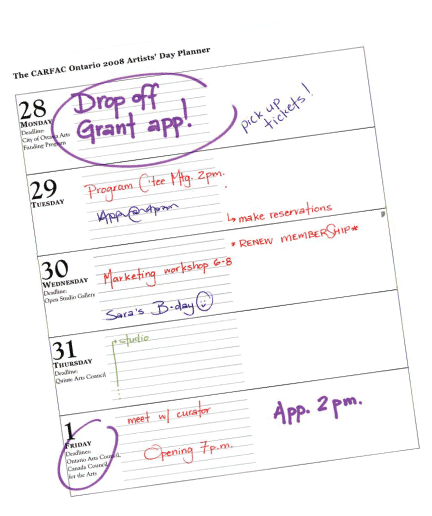 The CARFAC Ontario 2008 Artists' Day Planner
28
MONDAY
Deadline:
City of Ottawa Arts
Funding Program
Drop off
Grant app!
pick up
tickets!
29
TUESDAY
Program C'tee Mtg. 2pm.
App@4pm
↳ make reservations
* RENEW MEMBERSHIP*
30
WEDNESDAY
Deadline:
Open Studio Gallery
Marketing workshop 6-8
Sara's B-day ☺
31
THURSDAY
Deadline:
Quinte Arts Council
* studio
1
FRIDAY
Deadlines:
Ontario Arts Council,
Canada Council
for the Arts
meet w/ curator
Opening 7p.m.
App. 2pm.